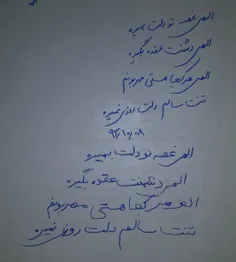 الهی غصه تو دلت بمیره
الهی دشمنت عقده بگیره
الهی هر کجا هستی مهربونم
تنت سالم دلت روزی نمیره
۹۲/۱۰/۰۸
الهی غصه تو دلت بمیره
الهی دشمنت عقده بگیره
الهی هر کجا هستی مهربونم
تنت سالم دلت روزی نمیره